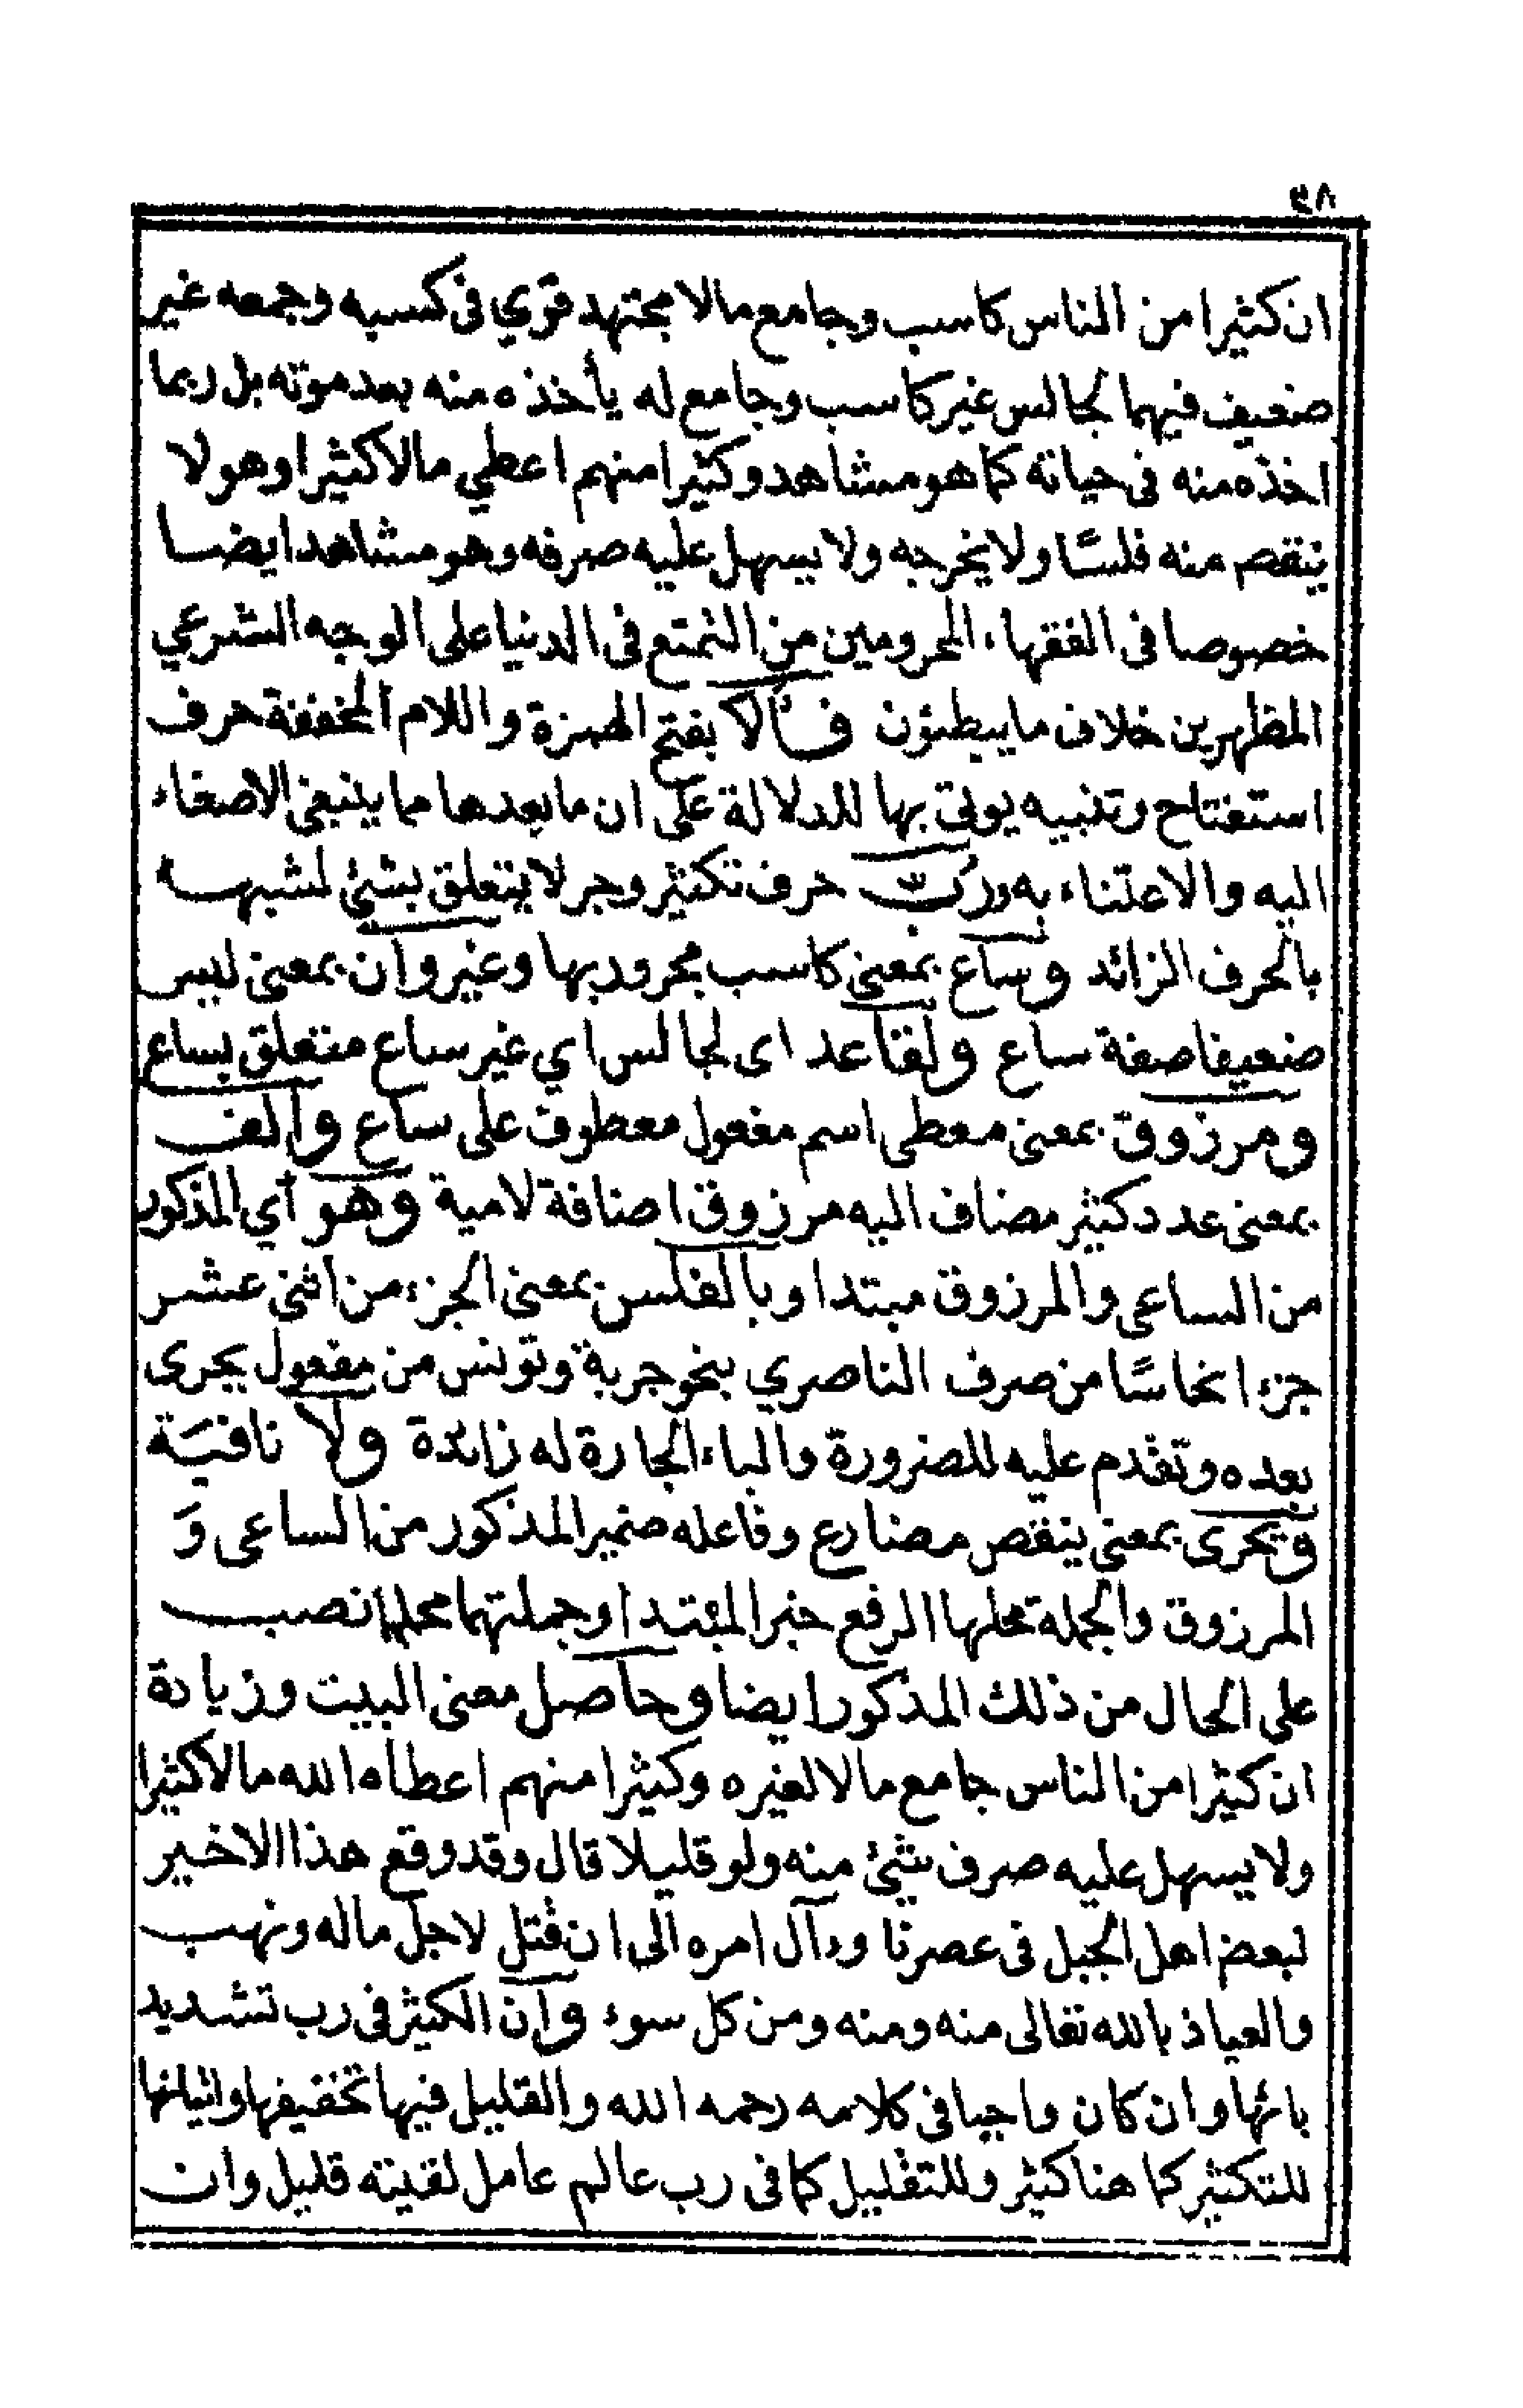 ٣٨
ان كثيرا من الناس كاسب وجامع مالا مجتهد قوي فى كسبه وجمعه غير
ضعيف فيهما لجالس غير كاسب وجامع له يأخذه منه بعد موته بل ربما
اخذه منه فى حياته كما هو مشاهد وكثيرا منهم اعطي مالا كثيرا وهو لا
ينقص منه فلسًا ولا يخرجه ولا يسهل عليه صرفه وهو مشاهد ايضا
خصوصا فى الفقهاء المحرومين من التمتع فى الدنيا على الوجه الشرعي
المظهرين خلاف ما يبطنؤن فـألا بفتح الهمزة واللام المخففة حرف
استفتاح وتنبيه يوتى بها للدلالة على ان ما بعدها مما ينبغى الاصغاء
اليه والاعتناء به ورُبّ حرف تكثير وجر لا يتعلق بشئ لشبهه
بالحرف الزائد وساع بمعنى كاسب مجرور بها وغير وان بمعنى ليس
ضعيفا صفة ساع ولقاعد اى لجالس اي غير ساع متعلق بساع
ومرزوق بمعنى معطى اسم مفعول معطوف على ساع وألف
بمعنى عدد كثير مضاف اليه مرزوق اضافة لامية وهو أي المذكور
من الساعى والمرزوق مبتدا وبالفلس بمعنى الجزء من اثنى عشر
جزءا نحاسًا من صرف الناصري بنحو جربة وتونس من مفعول يحرى
بعده وتقدم عليه للضرورة والباء الجارة له زائدة ولا نافيَة
ويحرى بمعنى ينقص مضارع وفاعله ضمير المذكور من الساعى وَ
المرزوق والجملة محلها الرفع خبر المبتدا وجملتهما محلها نصب
على الحال من ذلك المذكور ايضا وحاصل معنى البيت وزيادة
ان كثيرا من الناس جامع مالا لغيره وكثيرا منهم اعطاه الله مالا كثيرا
ولا يسهل عليه صرف شئ منه ولو قليلا قال وقد وقع هذا الاخير
لبعض اهل الجبل فى عصرنا وءآل امره الى ان قتل لاجل ماله ونهب
والعياذ بالله تعالى منه ومنه ومن كل سوء وأن الكثير فى رب تشديد
بائها وان كان واجبا فى كلامه رحمه الله والقليل فيها تخفيفها واتيانها
للتكثير كما هنا كثير وللتقليل كما فى رب عالم عامل لقيته قليل وان